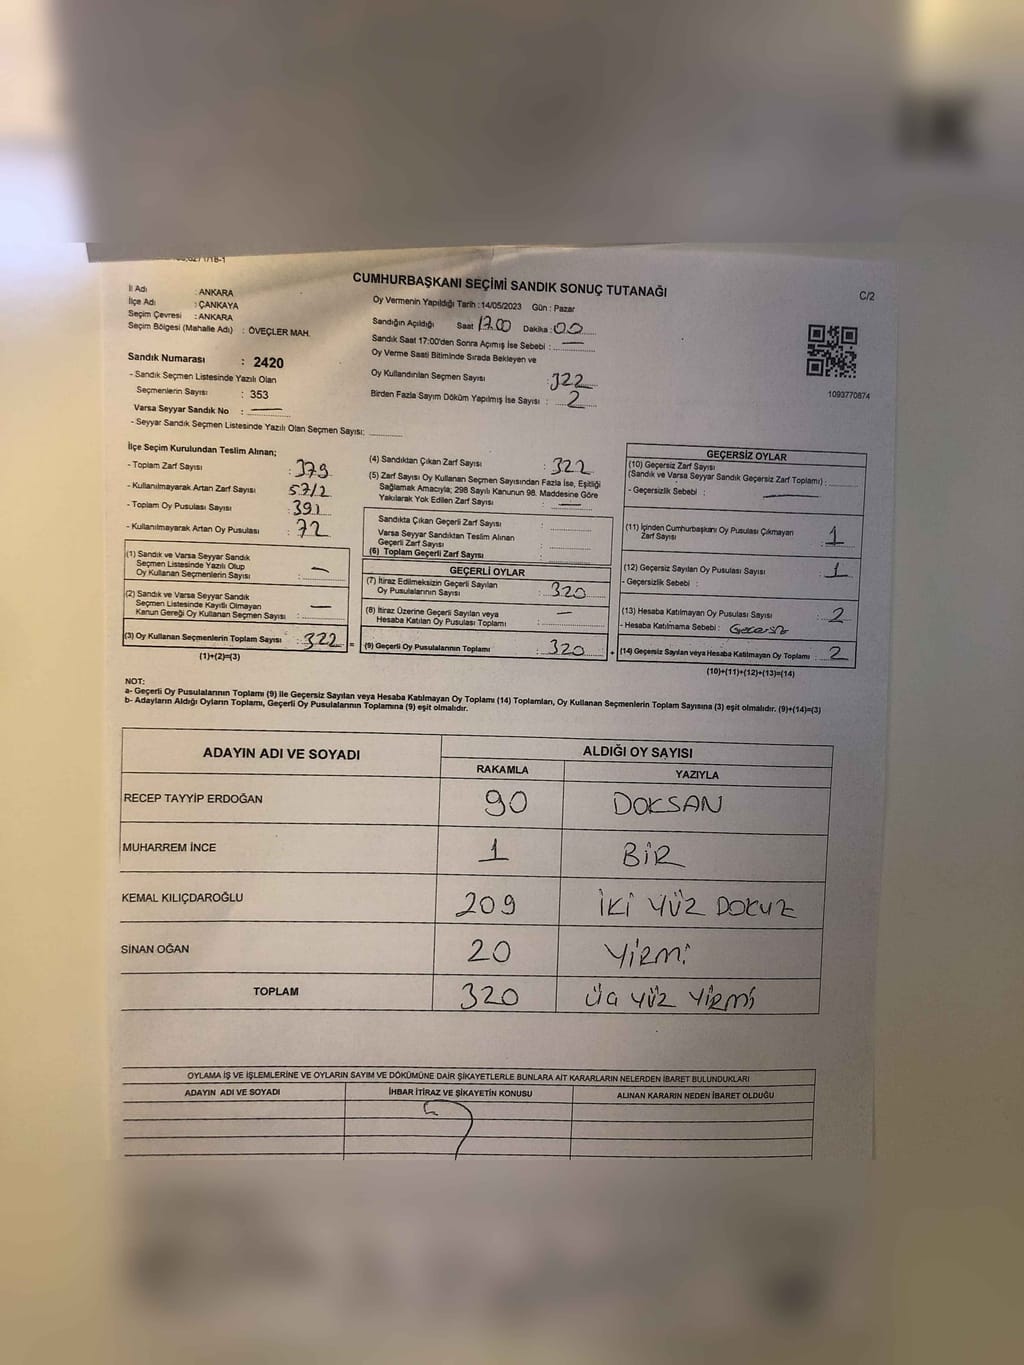 CUMHURBAŞKANI SEÇİMİ SANDIK SONUÇ TUTANAĞI
C/2
İl Adı : ANKARA
İlçe Adı : ÇANKAYA
Seçim Çevresi : ANKARA
Seçim Bölgesi (Mahalle Adı) : ÖVEÇLER MAH.
Oy Vermenin Yapıldığı Tarih : 14/05/2023 Gün : Pazar
Sandığın Açıldığı Saat 17.00 Dakika : 00
Sandık Saat 17:00'den Sonra Açımış İse Sebebi :
Oy Verme Saati Bitiminde Sırada Bekleyen ve
Oy Kullandırılan Seçmen Sayısı : 322
Birden Fazla Sayım Döküm Yapılmış İse Sayısı : 2
1093770874
Sandık Numarası : 2420
- Sandık Seçmen Listesinde Yazılı Olan
Seçmenlerin Sayısı : 353
Varsa Seyyar Sandık No :
- Seyyar Sandık Seçmen Listesinde Yazılı Olan Seçmen Sayısı:
İlçe Seçim Kurulundan Teslim Alınan;
- Toplam Zarf Sayısı : 379
- Kullanılmayarak Artan Zarf Sayısı : 57/2
- Toplam Oy Pusulası Sayısı : 391
- Kullanılmayarak Artan Oy Pusulası : 72
(1) Sandık ve Varsa Seyyar Sandık
Seçmen Listesinde Yazılı Olup
Oy Kullanan Seçmenlerin Sayısı :
(2) Sandık ve Varsa Seyyar Sandık
Seçmen Listesinde Kayıtlı Olmayan
Kanun Gereği Oy Kullanan Seçmen Sayısı :
(3) Oy Kullanan Seçmenlerin Toplam Sayısı : 322 =
(1)+(2)=(3)
(4) Sandıktan Çıkan Zarf Sayısı : 322
(5) Zarf Sayısı Oy Kullanan Seçmen Sayısından Fazla İse, Eşitliği
Sağlamak Amacıyla; 298 Sayılı Kanunun 98. Maddesine Göre
Yakılarak Yok Edilen Zarf Sayısı :
Sandıkta Çıkan Geçerli Zarf Sayısı :
Varsa Seyyar Sandıktan Teslim Alınan
Geçerli Zarf Sayısı :
(6) Toplam Geçerli Zarf Sayısı
GEÇERLİ OYLAR
(7) İtiraz Edilmeksizin Geçerli Sayılan
Oy Pusulalarının Sayısı : 320
(8) İtiraz Üzerine Geçerli Sayılan veya
Hesaba Katılan Oy Pusulası Toplamı :
(9) Geçerli Oy Pusulalarının Toplamı : 320 +
GEÇERSİZ OYLAR
(10) Geçersiz Zarf Sayısı
(Sandık ve Varsa Seyyar Sandık Geçersiz Zarf Toplamı) :
- Geçersizlik Sebebi :
(11) İçinden Cumhurbaşkanı Oy Pusulası Çıkmayan
Zarf Sayısı : 1
(12) Geçersiz Sayılan Oy Pusulası Sayısı : 1
- Geçersizlik Sebebi :
(13) Hesaba Katılmayan Oy Pusulası Sayısı : 2
- Hesaba Katılmama Sebebi : Geçersiz
(14) Geçersiz Sayılan veya Hesaba Katılmayan Oy Toplamı : 2
(10)+(11)+(12)+(13)=(14)
NOT:
a- Geçerli Oy Pusulalarının Toplamı (9) ile Geçersiz Sayılan veya Hesaba Katılmayan Oy Toplamı (14) Toplamları, Oy Kullanan Seçmenlerin Toplam Sayısına (3) eşit olmalıdır. (9)+(14)=(3)
b- Adayların Aldığı Oyların Toplamı, Geçerli Oy Pusulalarının Toplamına (9) eşit olmalıdır.
ADAYIN ADI VE SOYADI ALDIĞI OY SAYISI
RAKAMLA YAZIYLA
RECEP TAYYİP ERDOĞAN 90 DOKSAN
MUHARREM İNCE 1 BİR
KEMAL KILIÇDAROĞLU 209 İKİ YÜZ DOKUZ
SİNAN OĞAN 20 YİRMİ
TOPLAM 320 ÜÇ YÜZ YİRMİ
OYLAMA İŞ VE İŞLEMLERİNE VE OYLARIN SAYIM VE DÖKÜMÜNE DAİR ŞİKAYETLERLE BUNLARA AİT KARARLARIN NELERDEN İBARET BULUNDUKLARI
ADAYIN ADI VE SOYADI İHBAR İTİRAZ VE ŞİKAYETİN KONUSU ALINAN KARARIN NEDEN İBARET OLDUĞU